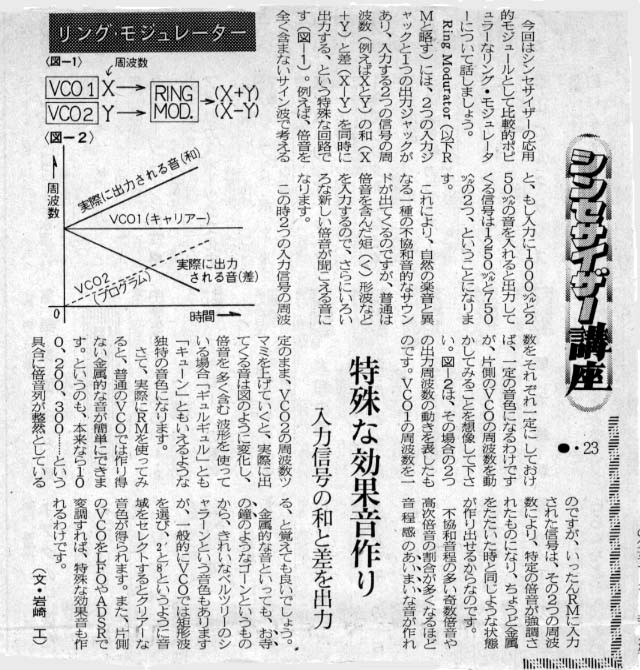 シンセサイザー講座
●・23
今回はシンセサイザーの応用
的モジュールとして比較的ポピ
ュラーなリング・モジュレータ
ーについて話しましょう。
Ring Modurator（以下R
Mと略す）には、2つの入力ジ
ャックと1つの出力ジャックが
あり、入力する2つの信号の周
波数（例えばXとY）の和（X
+Y）と差（X−Y）を同時に
出力する、という特殊な回路で
す（図−1）。例えば、倍音を
全く含まないサイン波で考える
リング・モジュレーター
〈図−1〉
周波数
VCO1 X
VCO2 Y
RING MOD.
(X+Y)
(X−Y)
〈図−2〉
周波数
実際に出力される音(和)
VCO1(キャリアー)
VCO2
(プログラム)
実際に出力
される音(差)
0
時間
と、もし入力に1000㌹と2
50㌹の音を入れると出力して
くる信号は1250㌹と750
㌹の2つ、ということになりま
す。
これにより、自然の楽音と異
なる一種の不協和音的なサウン
ドが出てくるのですが、普通は
倍音を含んだ矩（く）形波など
を入力するので、さらにいろい
ろな新しい倍音が聞こえる音に
なります。
この時2つの入力信号の周波
数をそれぞれ一定にしておけ
ば、一定の音色になるわけです
が、片側のVCOの周波数を動
かしてみることを想像して下さ
い。図−2は、その場合の2つ
の出力周波数の動きを表したも
のです。VCO1の周波数を一
特殊な効果音作り
入力信号の和と差を出力
定のまま、VCO2の周波数ツ
マミを上げていくと、実際に出
てくる音は図のように変化し、
倍音を多く含む波形を使って
いる場合「ギュルギュル」とも
「キューン」ともいえるような
独特の音色になります。
さて、実際にRMを使ってみ
ると、普通のVCOでは作り得
ない金属的な音が簡単にできま
す。というのも、本来なら10
0、200、300……という
具合に倍音列が整然としている
のですが、いったんRMに入力
された信号は、その2つの周波
数により、特定の倍音が強調さ
れたものになり、ちょうど金属
をたたいた時と同じような状態
が作り出せるからなのです。
不協和音程の多い奇数倍音や
高次倍音の割合が多くなるほど
音程感のあいまいな音が作れ
る、と覚えても良いでしょう。
金属的な音といっても、お寺
の鐘のようなゴーンというもの
から、きれいなベルツリーのシ
ャラーンという音色もあります
が、一般的にVCOでは矩形波
を選び、2′と8′というように音
域をセレクトするとクリアーな
音色が得られます。また、片側
のVCOをLFOやADSRで
変調すれば、特殊な効果音も作
れるわけです。
（文・岩崎 工）